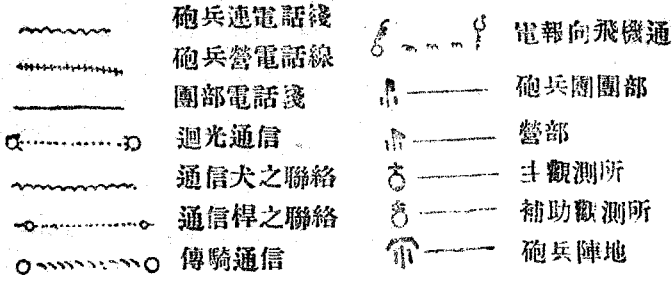 砲兵連電話綫
砲兵營電話線
團部電話綫
迴光通信
通信犬之聯絡
通信桿之聯絡
傳騎通信
電報向飛機通
砲兵團團部
營部
主觀測所
補助觀測所
砲兵陣地